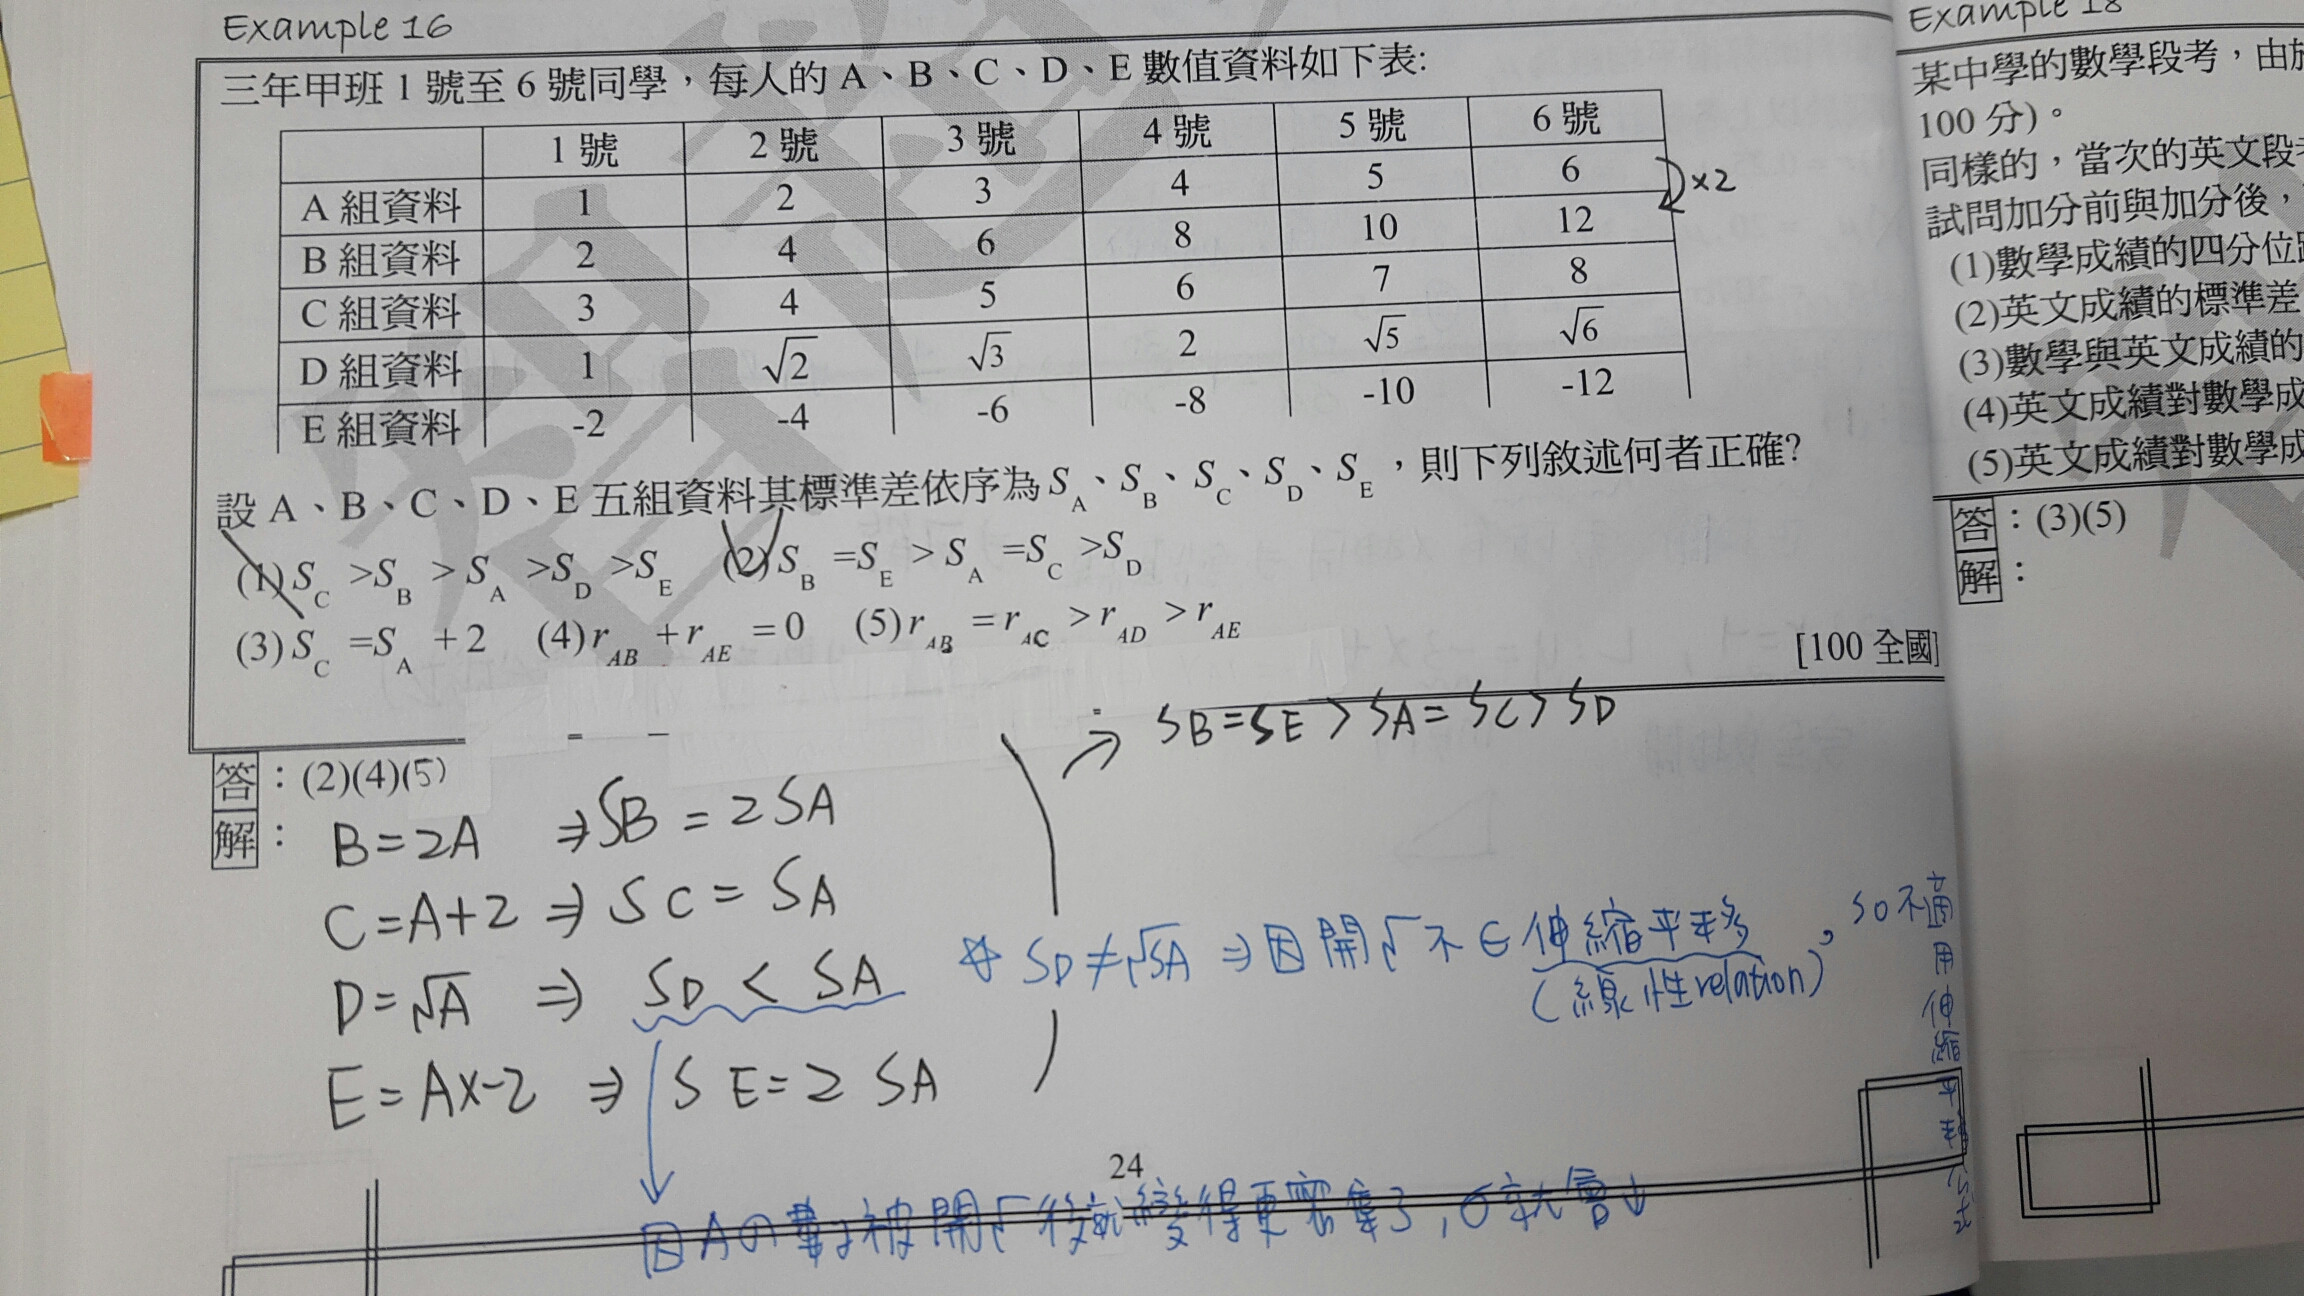 Example 16
三年甲班 1 號至 6 號同學，每人的 A、B、C、D、E 數值資料如下表:
1 號 2 號 3 號 4 號 5 號 6 號
A 組資料 1 2 3 4 5 6
×2
B 組資料 2 4 6 8 10 12
C 組資料 3 4 5 6 7 8
D 組資料 1 √2 √3 2 √5 √6
E 組資料 -2 -4 -6 -8 -10 -12
設 A、B、C、D、E 五組資料其標準差依序為 S_A、S_B、S_C、S_D、S_E，則下列敘述何者正確?
(1) S_C >S_B > S_A >S_D >S_E (2) S_B =S_E > S_A =S_C >S_D
(3) S_C =S_A +2 (4) r_AB + r_AE = 0 (5) r_AB = r_AC > r_AD > r_AE
[100 全國]
答：(2)(4)(5)
解：
B=2A ⇒ SB = 2SA
C=A+2 ⇒ SC = SA
D=√A ⇒ SD < SA
E=Ax-2 ⇒ SE=2 SA
→ SB=SE > SA = SC > SD
☆ SD≠√SA ⇒ 因開√不∈伸縮平移，so不適用伸縮平移公式
(線性relation)
因Aの數被開√後就變得更密集了，σ就會↓
24
Example 18
某中學的數學段考，由於
100 分)。
同樣的，當次的英文段考
試問加分前與加分後，
(1)數學成績的四分位距
(2)英文成績的標準差
(3)數學與英文成績的
(4)英文成績對數學成
(5)英文成績對數學成
答：(3)(5)
解：